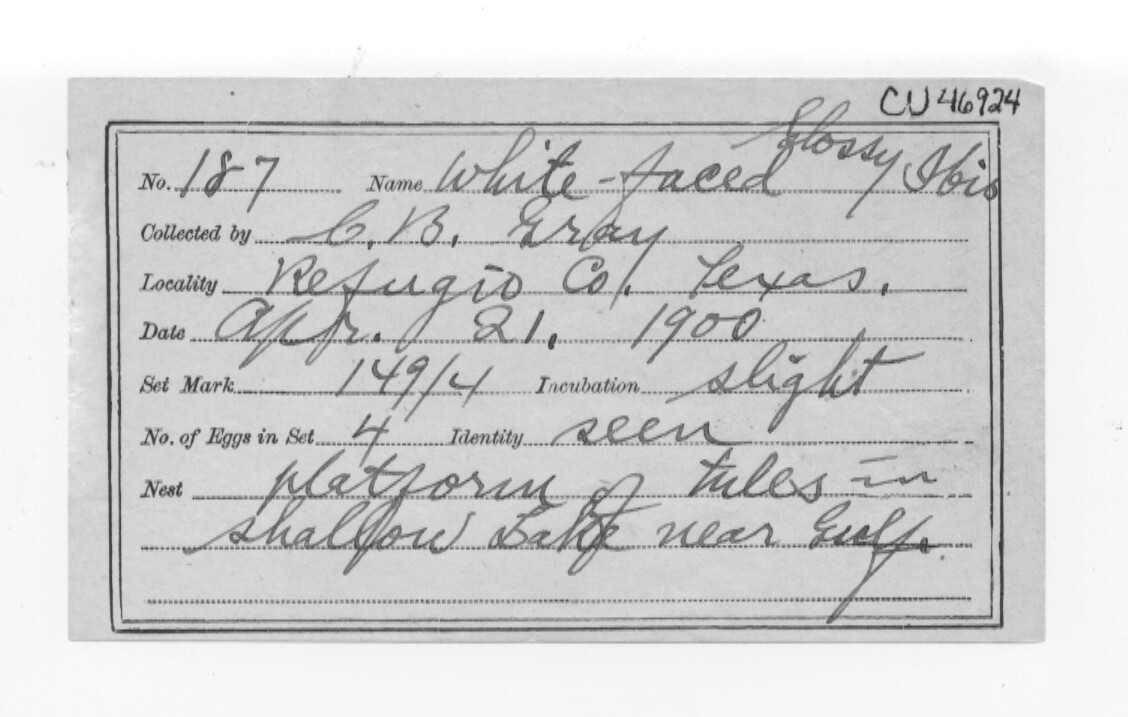 CU 46924
No. 187 Name White-faced Glossy Ibis
Collected by C. B. Gray
Locality Refugio Co. Texas.
Date Apr. 21, 1900
Set Mark 149/4 Incubation slight
No. of Eggs in Set 4 Identity seen
Nest platform of tules in
shallow Lake near Gulf.